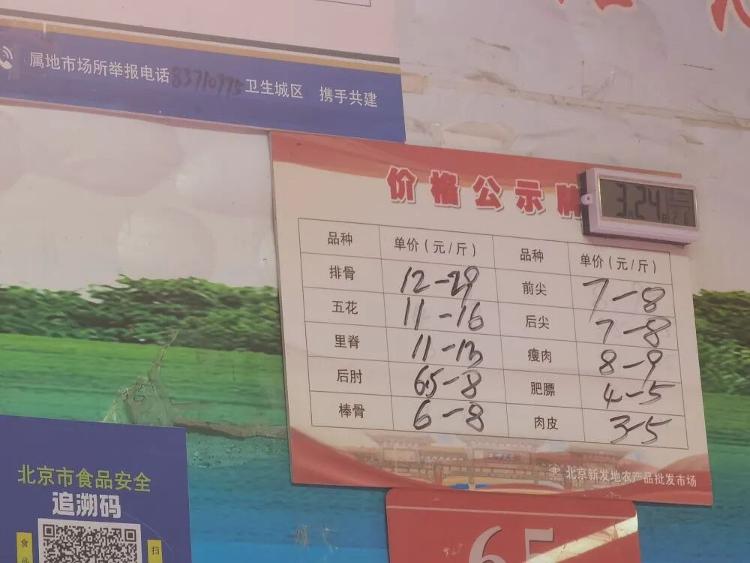 属地市场所举报电话83710975 卫生城区 携手共建
价格公示牌
3.24
品种 单价（元/斤） 品种 单价（元/斤）
排骨 12-29 前尖 7-8
五花 11-16 后尖 7-8
里脊 11-13 瘦肉 8-9
后肘 6.5-8 肥膘 4-5
棒骨 6-8 肉皮 3-5
北京新发地农产品批发市场
北京市食品安全
追溯码
食
扫
65